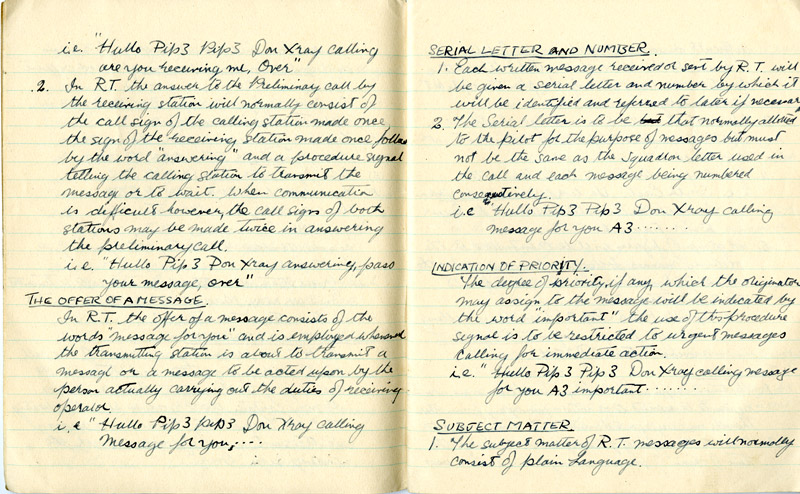 i.e. "Hullo Pip3 Pip3 Don Xray calling
are you receiving me, Over"
2. In R.T. the answer to the Preliminary call by
the receiving station will normally consist of
the call sign of the calling station made once,
the sign of the receiving station made once follow
by the word "answering" and a procedure signal
telling the calling station to transmit the
message or to wait. When communication
is difficult however, the call signs of both
stations may be made twice in answering
the preliminary call.
i.e. "Hullo Pip3 Don Xray answering, pass
your message, over"
THE OFFER OF A MESSAGE.
In R.T. the offer of a message consists of the
words "message for you" and is employed whenever
the transmitting station is about to transmit a
message or a message to be acted upon by the
person actually carrying out the duties of receiving
operator.
i.e "Hullo Pip3 pip3 Don Xray calling
Message for you, ....
SERIAL LETTER AND NUMBER.
1. Each written message received or sent by R.T. will
be given a serial letter and number by which it
will be identified and referred to later if necessary
2. The Serial letter is to be that normally allotted
to the pilot for the purpose of messages but must
not be the same as the Squadron letter used in
the call and each message being numbered
consequtively.
i.e "Hullo Pip3 Pip3 Don Xray calling
message for you A3 .......
INDICATION OF PRIORITY.
The degree of priority, if any, which the originator
may assign to the message will be indicated by
the word "important" the use of this procedure
signal is to be restricted to urgent messages
calling for immediate action.
i.e. "Hullo Pip3 Pip3 Don Xray calling message
for you A3 important .......
SUBJECT MATTER.
1. The subject matter of R.T. messages will normally
consist of plain language.